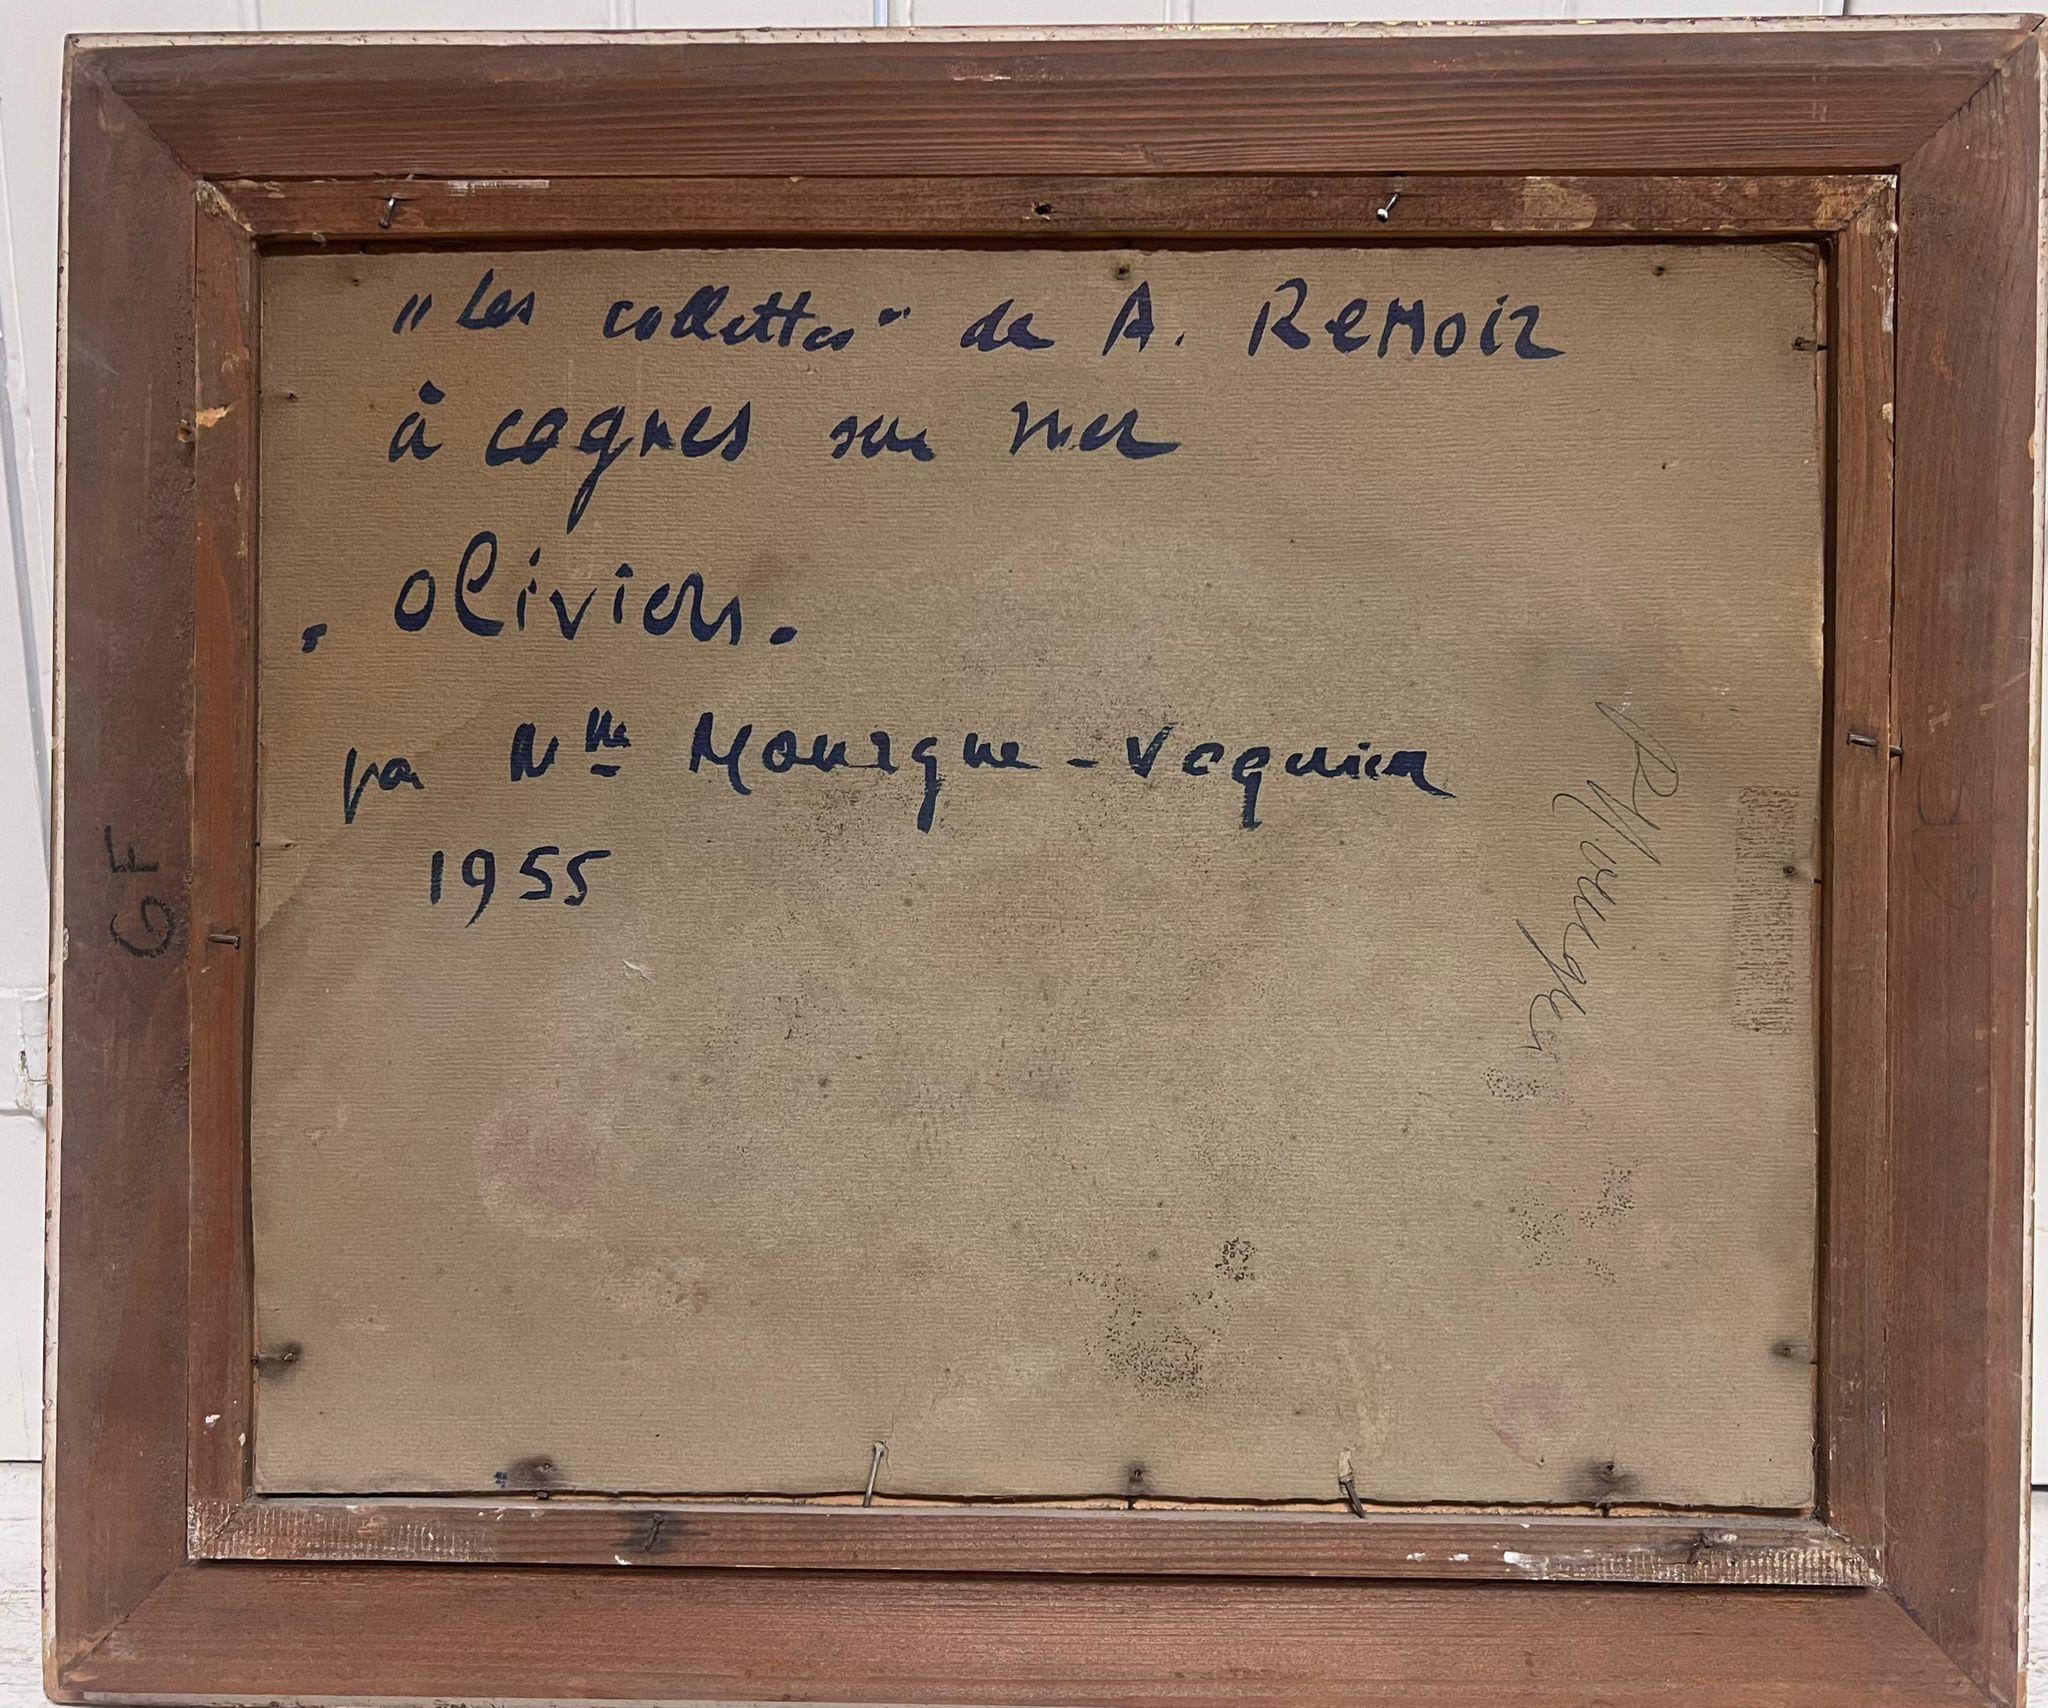 "Les collettes" de A. Renoir
à cagnes sur mer
. oliviers.
par Mlle Mourgue-Vequier
1955
GF